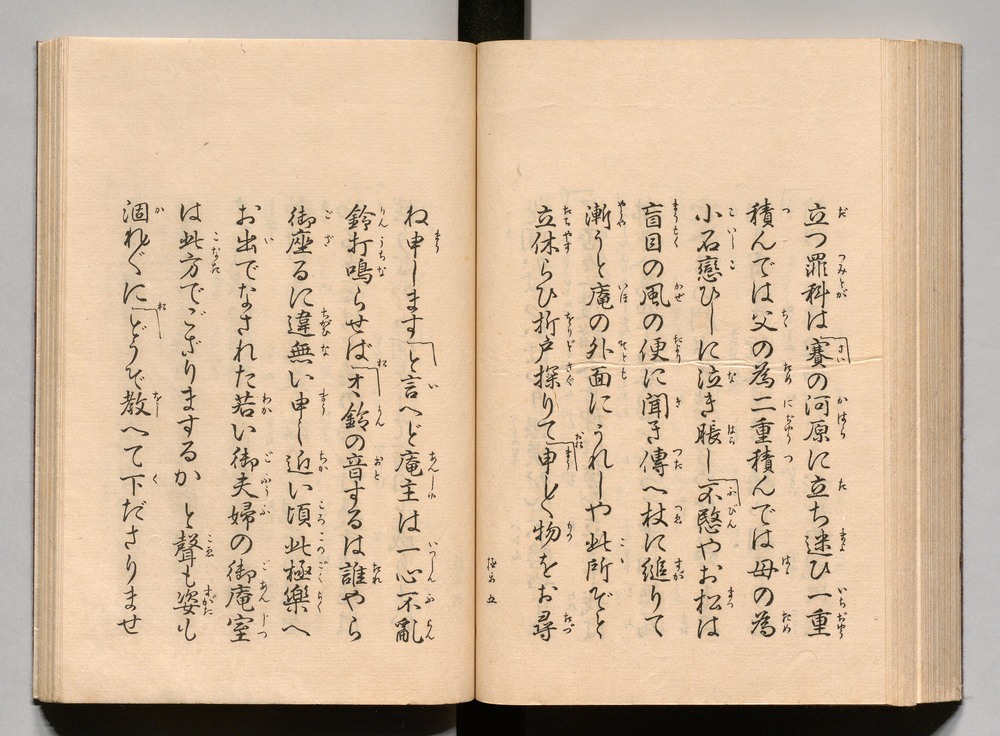 立つ罪科は賽の河原に立ち迷ひ一重
積んでは父の為二重積んでは母の為
小石戀ひしに泣き賬し不愍やお松は
盲目の風の便に聞き傳へ杖に縋りて
漸うと庵の外面にうれしや此所ぞと
立休らひ折戸探りて申し〱物をお尋
ね申します と言へど庵主は一心不亂
鈴打鳴らせば オヽ鈴の音するは誰やら
御座るに違無い申し近い頃此極樂へ
お出でなされた若い御夫婦の御庵室
は此方でござりまするか と聲も姿も
涸れ〲に どうぞ教へて下ださりませ